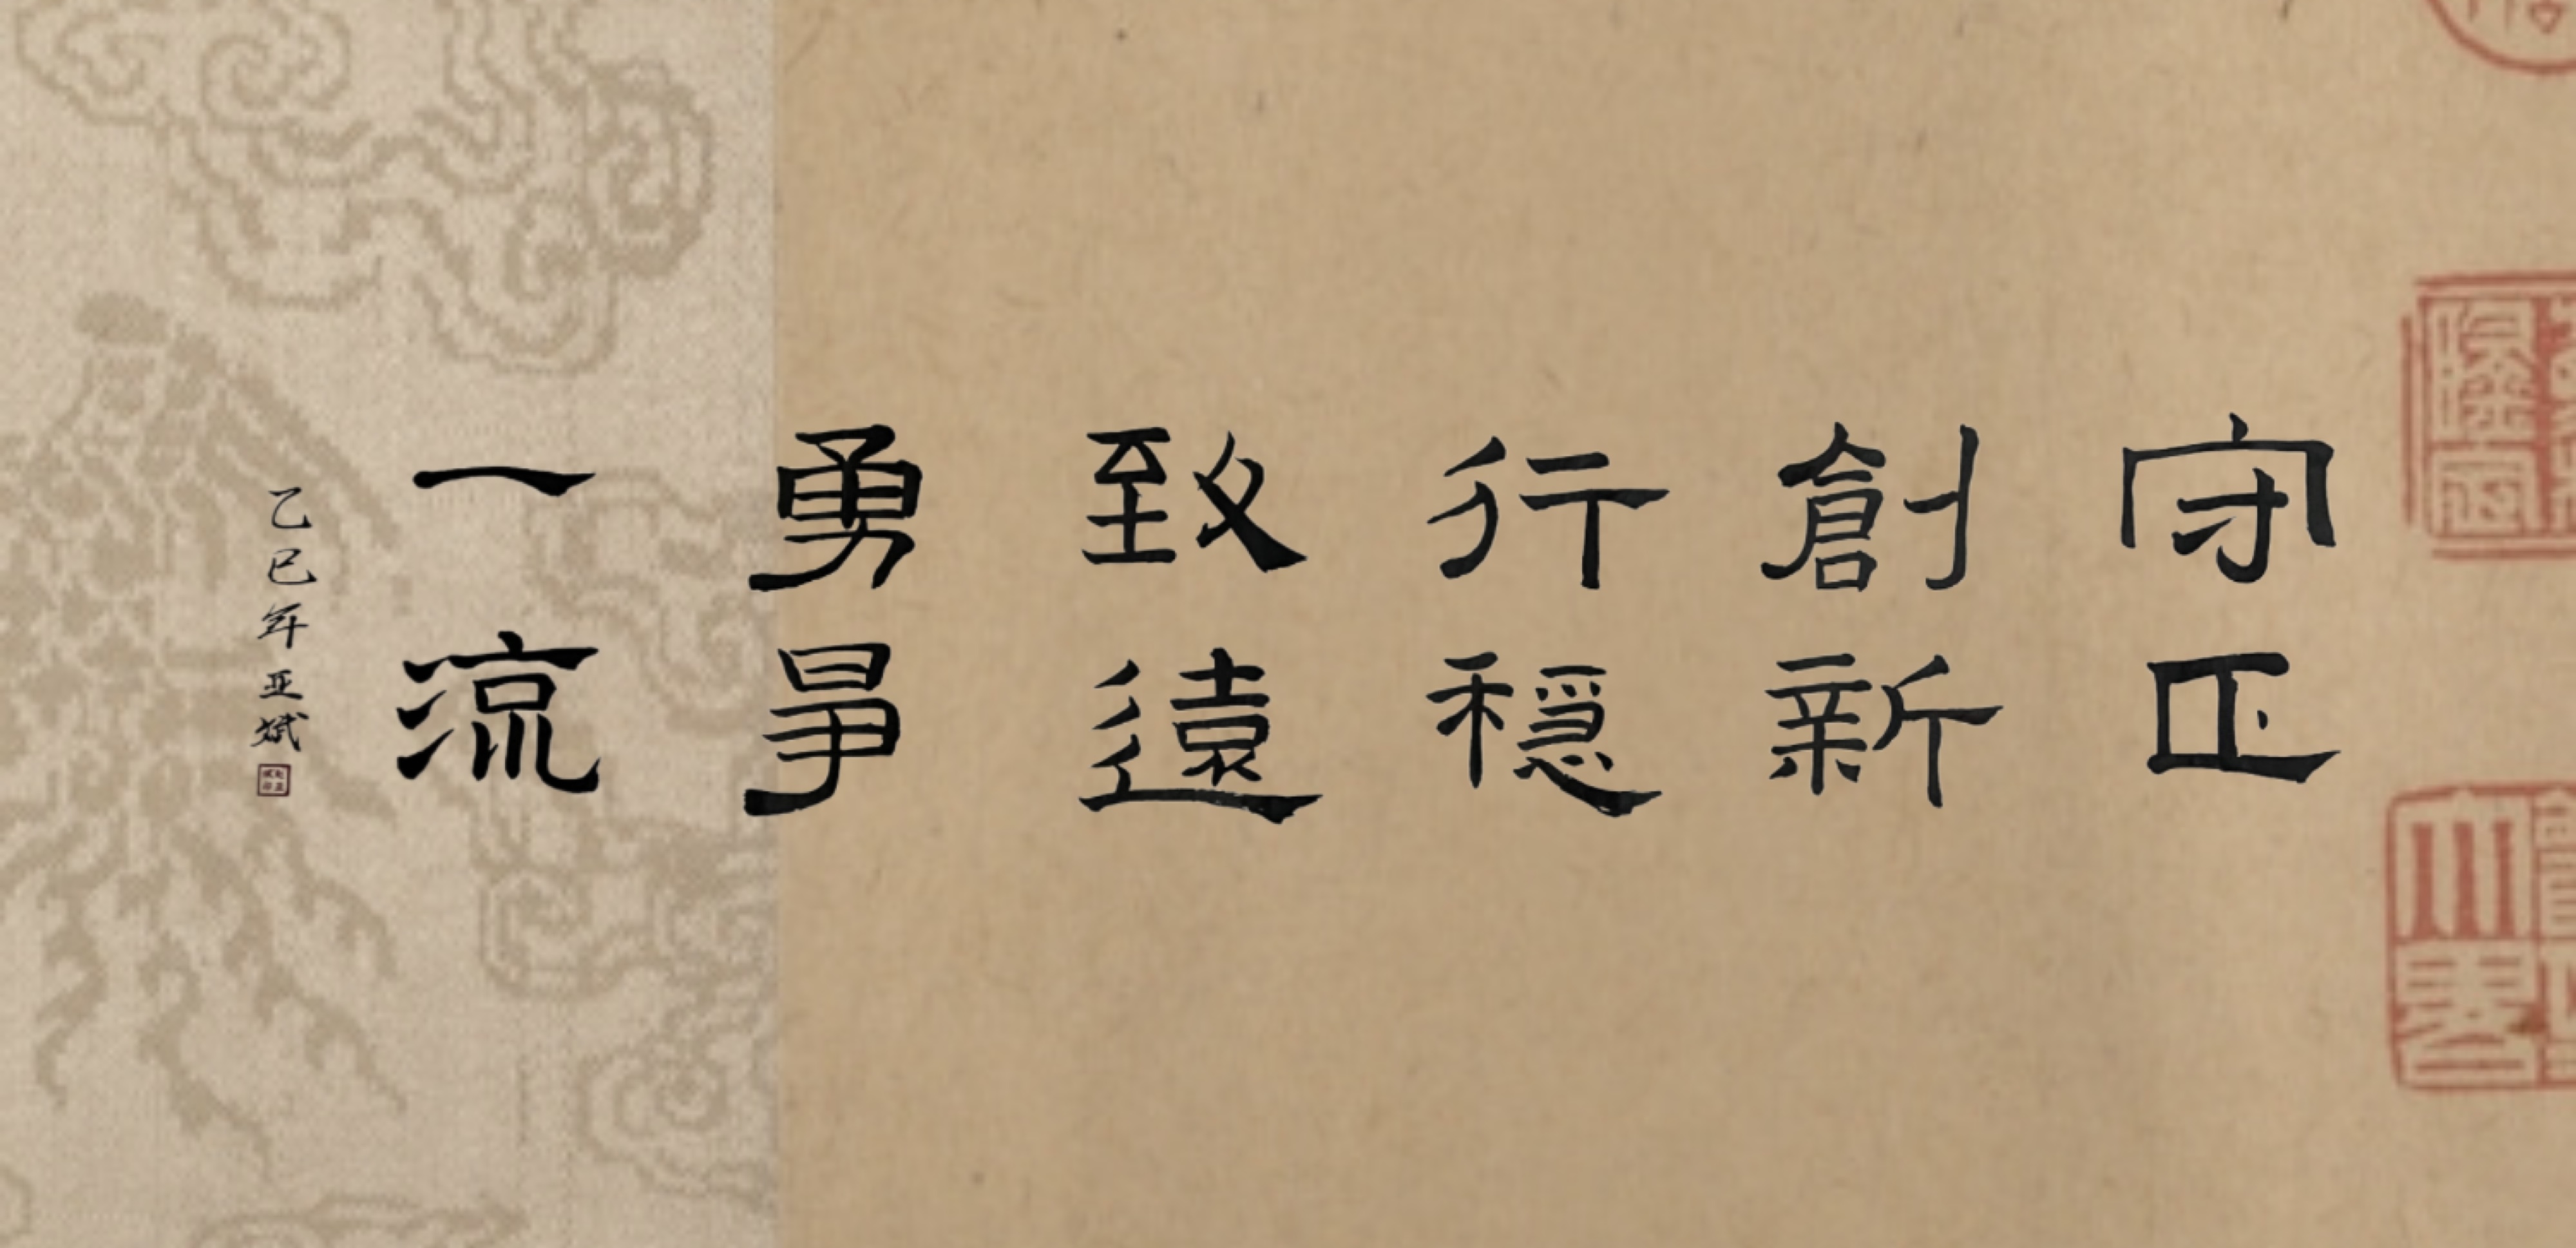 守正
創新
行穏
致遠
勇爭
一流
乙巳年亚斌